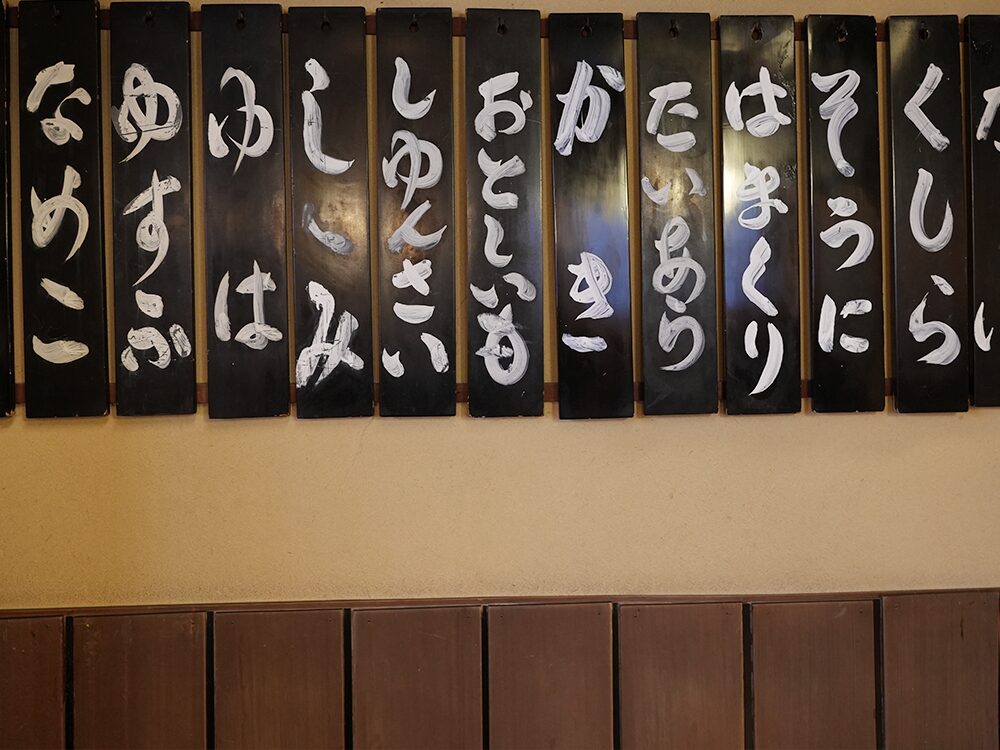 くしら
そうに
はまくり
たいあら
かき
おとしいも
しゆんさい
しゝみ
ゆは
ゆすふ
なめこ